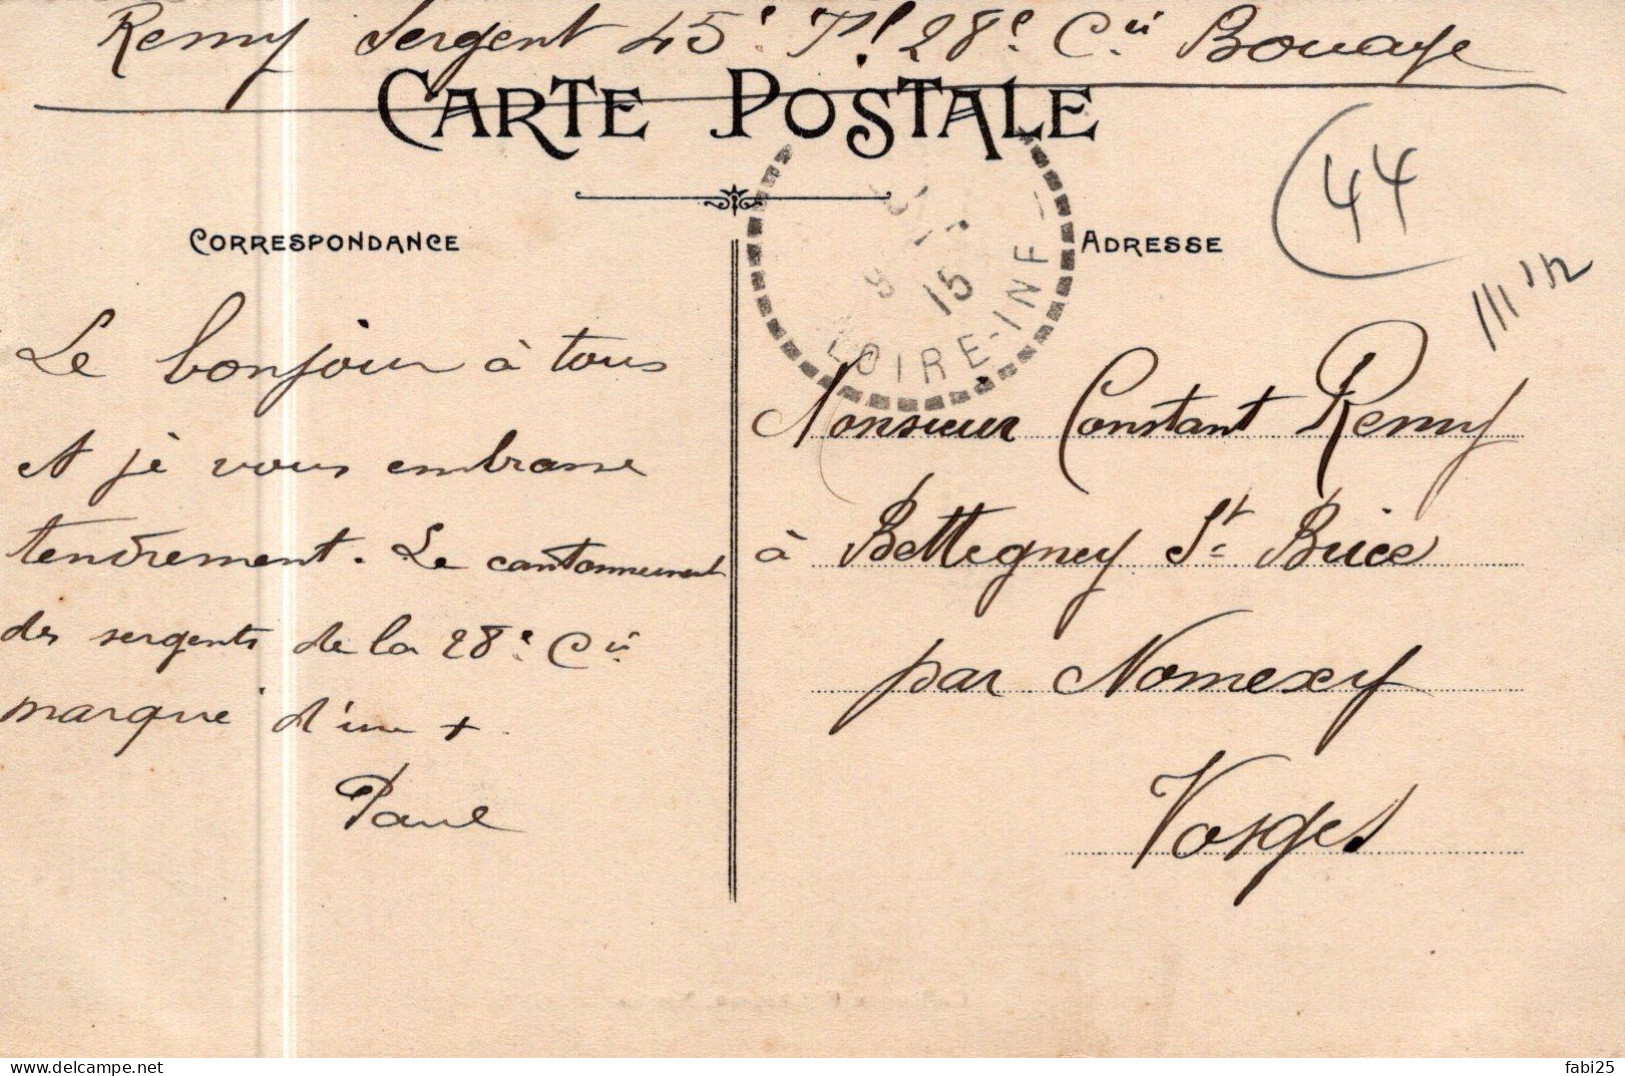 Remy Sergent 45e Tl 28e Cie Bouaye
CARTE POSTALE
44
CORRESPONDANCE
ADRESSE
15
LOIRE-INF
Le bonjour à tous
et je vous embrasse
tendrement. Le cantonnement
des sergents de la 28e Cie
marqué d'une +
Paul
Monsieur Constant Remy
à Bettegney St Brice
par Nomexy
Vosges
fabi25